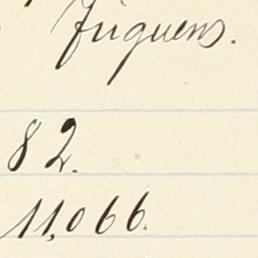 Friguens.
82.
11,066.